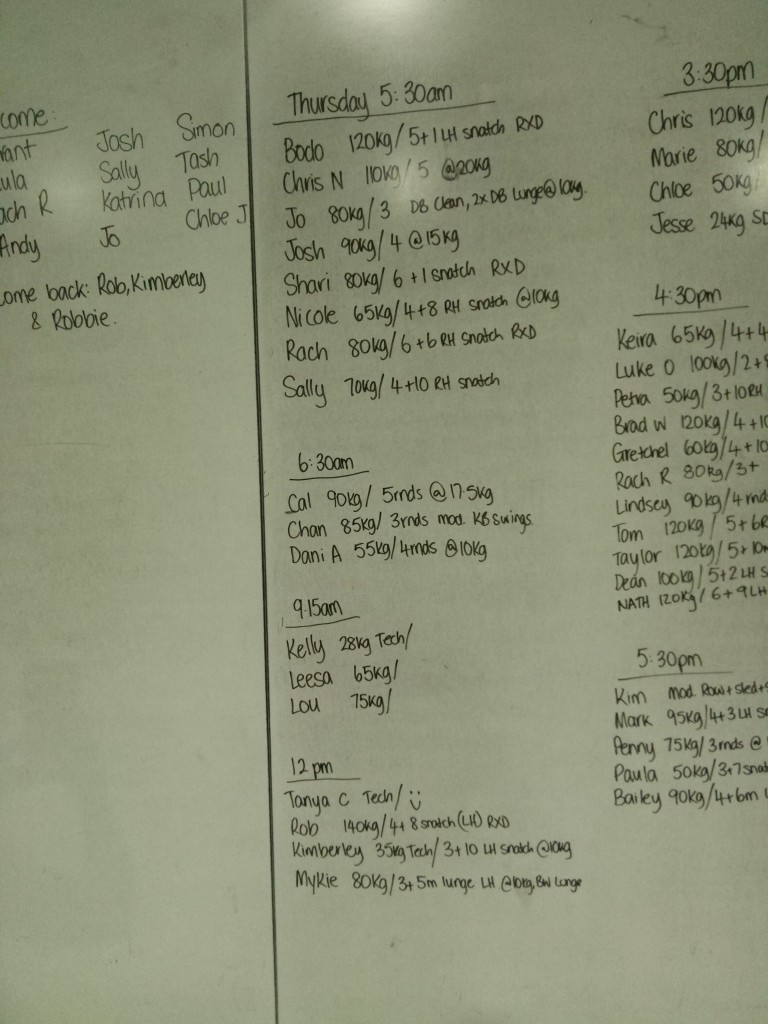 come:
Josh Simon
Sally Tash
Katrina Paul
Andy Jo Chloe J
come back: Rob, Kimberley
& Robbie.
Thursday 5:30am
Bodo 120kg/ 5+1 LH snatch RXD
Chris N 110kg/ 5 @20kg
Jo 80kg/3 DB Clean, 2x DB Lunge@10kg.
Josh 90kg/4 @15kg
Shari 80kg/ 6 +1 snatch RXD
Nicole 65kg/4+8 RH snatch @10kg
Rach 80kg/6+6 RH snatch RXD
Sally 70kg/4+10 RH snatch
6:30am
Cal 90kg/ 5rnds @17.5kg
Chan 85kg/ 3rnds mod. KB swings.
Dani A 55kg/4rnds @10kg
9:15am
Kelly 28kg Tech/
Leesa 65kg/
Lou 75kg/
12pm
Tanya C Tech/
Rob 140kg/4+8 snatch (LH) RXD
Kimberley 35kg Tech/3+10 LH snatch @10kg
Mykie 80kg/3+5m lunge LH @10kg, BW Lunge
3:30pm
Chris 120kg/
Marie 80kg/
Chloe 50kg/
Jesse 24kg
4:30pm
Keira 65kg/4+4
Luke O 100kg/2+
Petra 50kg/3+10RH
Brad W 120kg/4+10
Gretchel 60kg/4+10
Rach R 80kg/3+
Lindsey 90kg/4rnd
Tom 120kg/ 5+6R
Taylor 120kg/5+10m
Dean 100kg/5+2 LH S
NATH 120kg/ 6+9LH
5:30pm
Kim mod. Row+sled+
Mark 95kg/4+3 LH
Penny 75kg/3rnds @
Paula 50kg/3+7snat
Bailey 90kg/4+6m